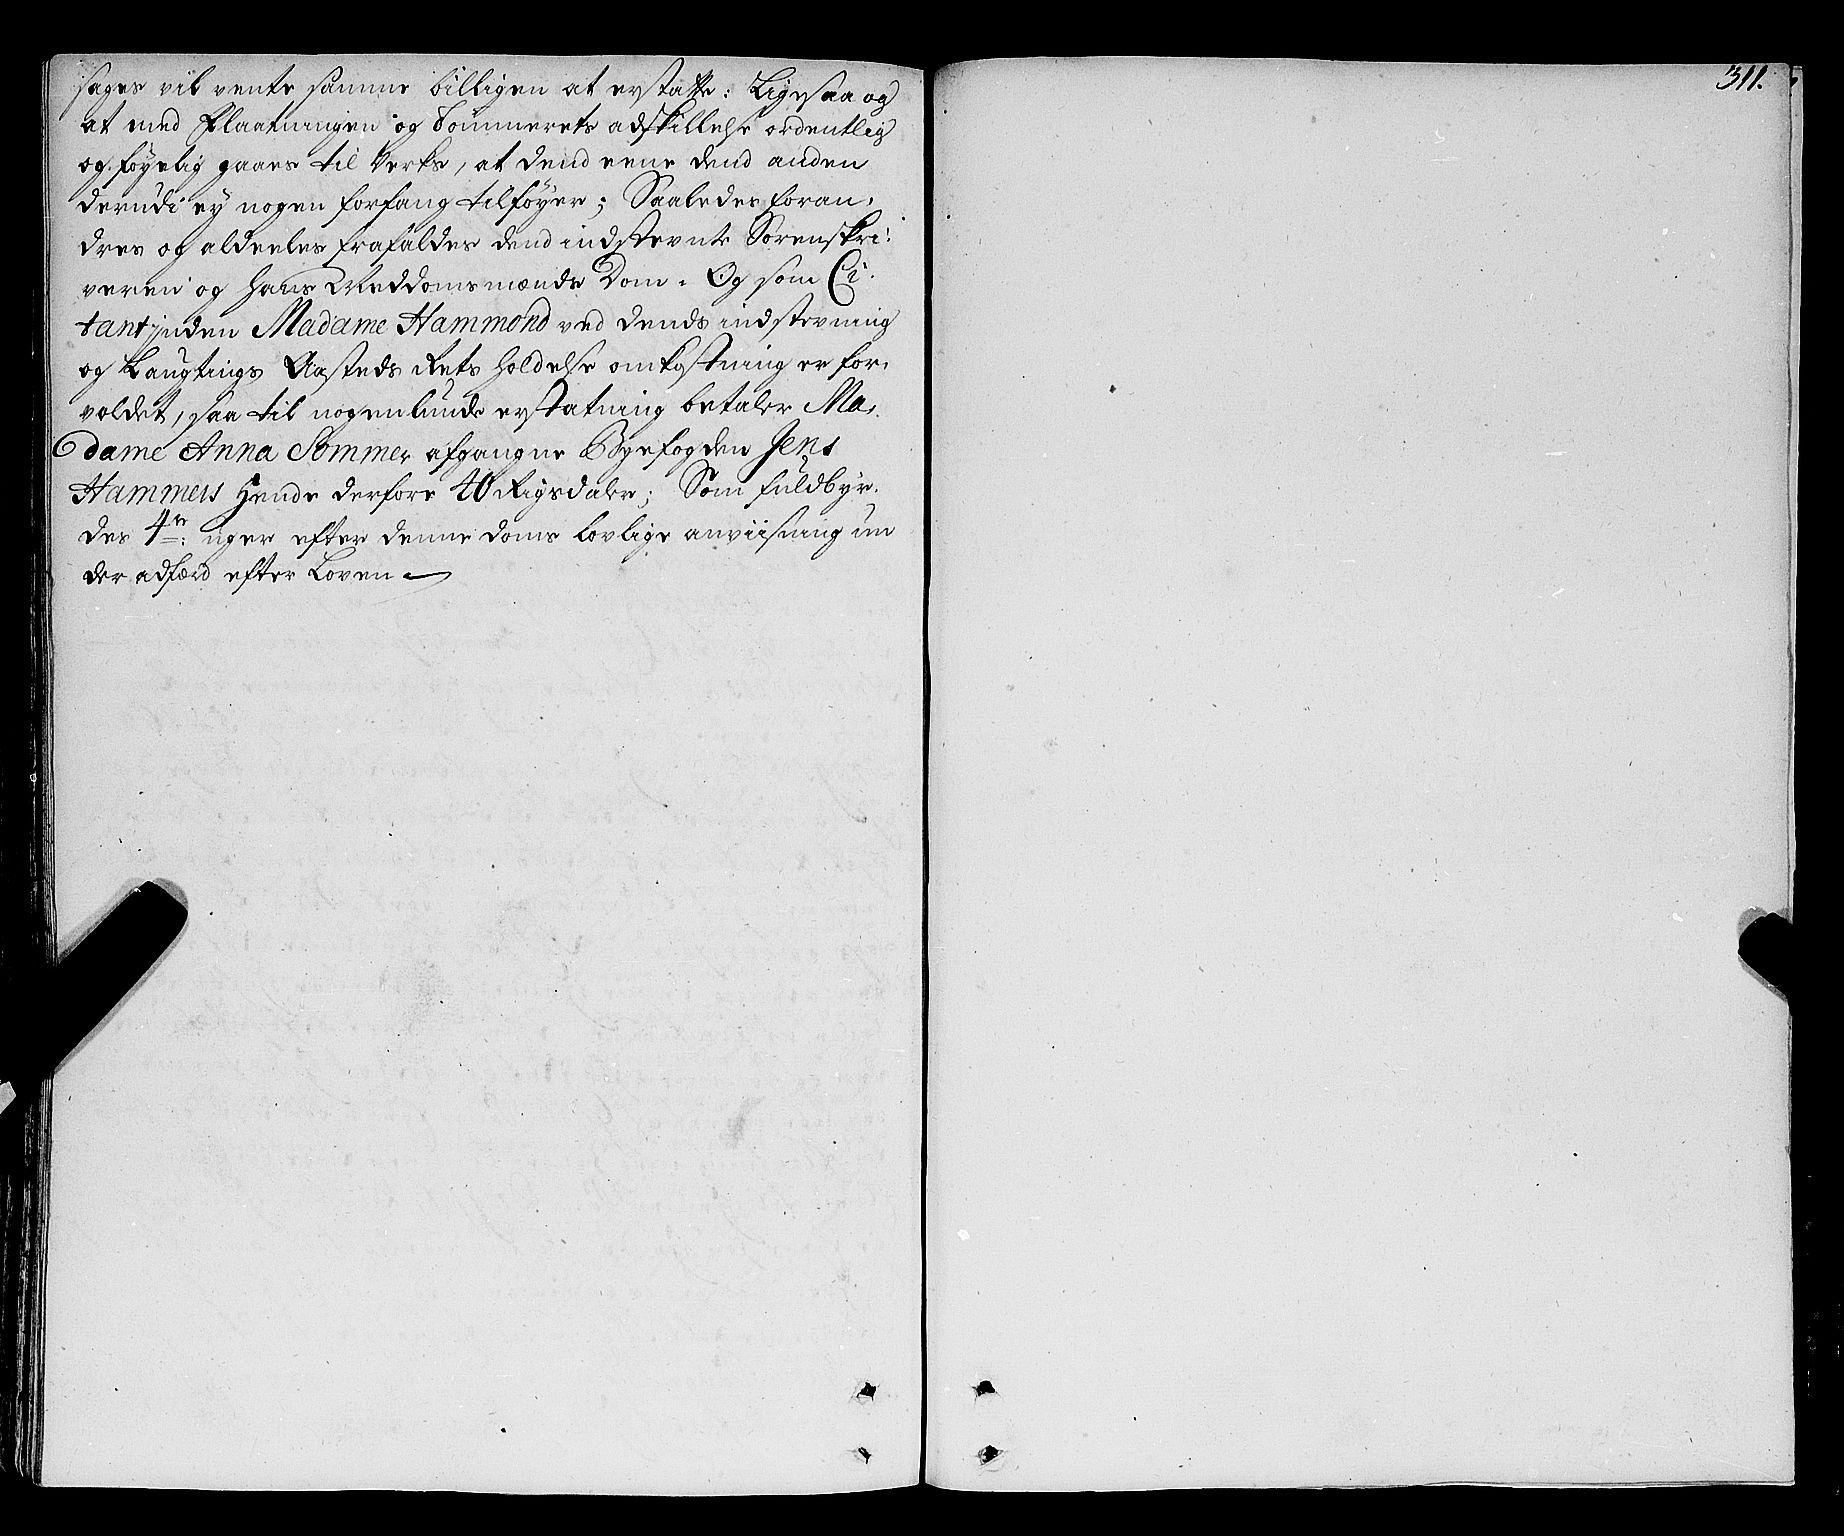 sages vil vente samme billigen at erstatte: Ligesaa og
at med Flaatningen og Tømmerets adskillelse ordentlig
og føyelig gaaes til Verks, at dend eene dend anden
derudi ey nogen forfang tilføyer; Saaledes foran,
dres og aldeeles frafaldes dend indstevnte Sorenskri,
veren og hans Meddomsmænds Dom. Og som Ci,
tantjnden Madame Hammond ved dends indstevning
og Laugtings Aasteds Rets holdelse omkostning er for,
voldet, saa til nogenlunde erstatning betaler Ma,
dame Anna Sommer afgangne Byefogden Jens
Hammers Hende derfore 40 Rigsdaler; Som fuldbyr,
des 4re: uger efter denne doms lovlige anviisning un
der adfærd efter Loven
311.